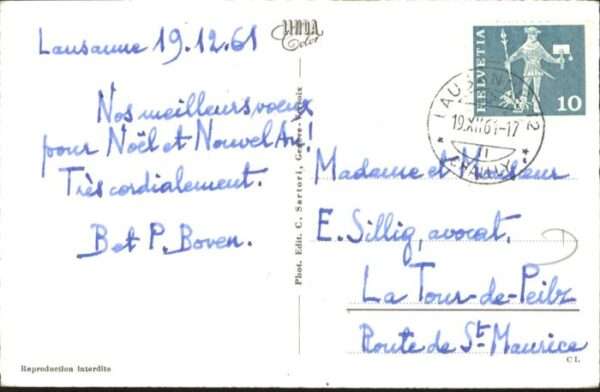 Lausanne 19.12.61
Nos meilleurs voeux
pour Noël et Nouvel An!
Très cordialement.
B et P. Boven.
LINDA
Color
Phot. Edit. C. Sartori, Genève-
HELVETIA
10
LAUSANNE 12
19.XII.61-17
Madame et Monsieur
E. Sillig, avocat.
La Tour-de-Peilz
Route de St Maurice
Reproduction interdite
CL